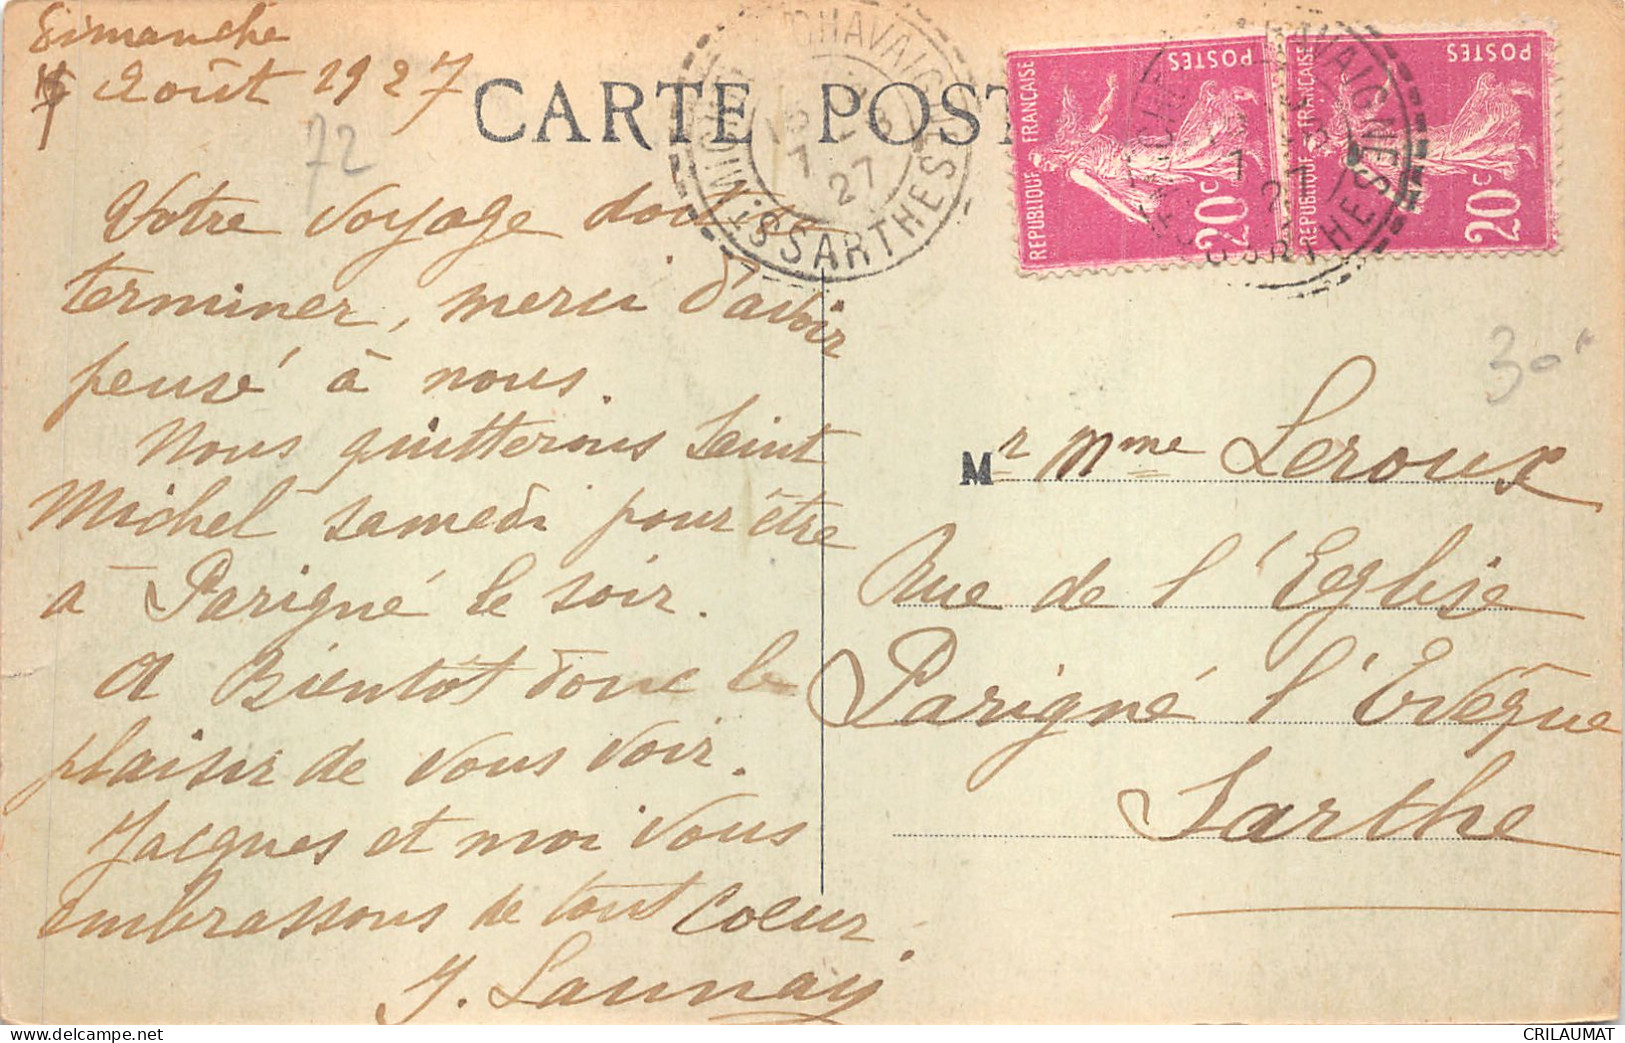 Dimanche
7 Août 1927
72
CARTE POST
Votre voyage doit se
terminer, merci d'avoir
pensé à nous.
Nous quitterons Saint
Michel samedi pour être
à Parigné le soir.
A Bientôt donc le
plaisir de vous voir.
Jacques et moi vous
embrassons de tout coeur.
J. Launay
MICHEL DE CHAVAIGNES
SARTHE
15
7 - 8
27
REPUBLIQUE FRANÇAISE
POSTES
20c
REPUBLIQUE FRANÇAISE
POSTES
20c
30
Mr Mme Leroux
Rue de l'Eglise
Parigné l'Evêque
Sarthe
CRILAUMAT